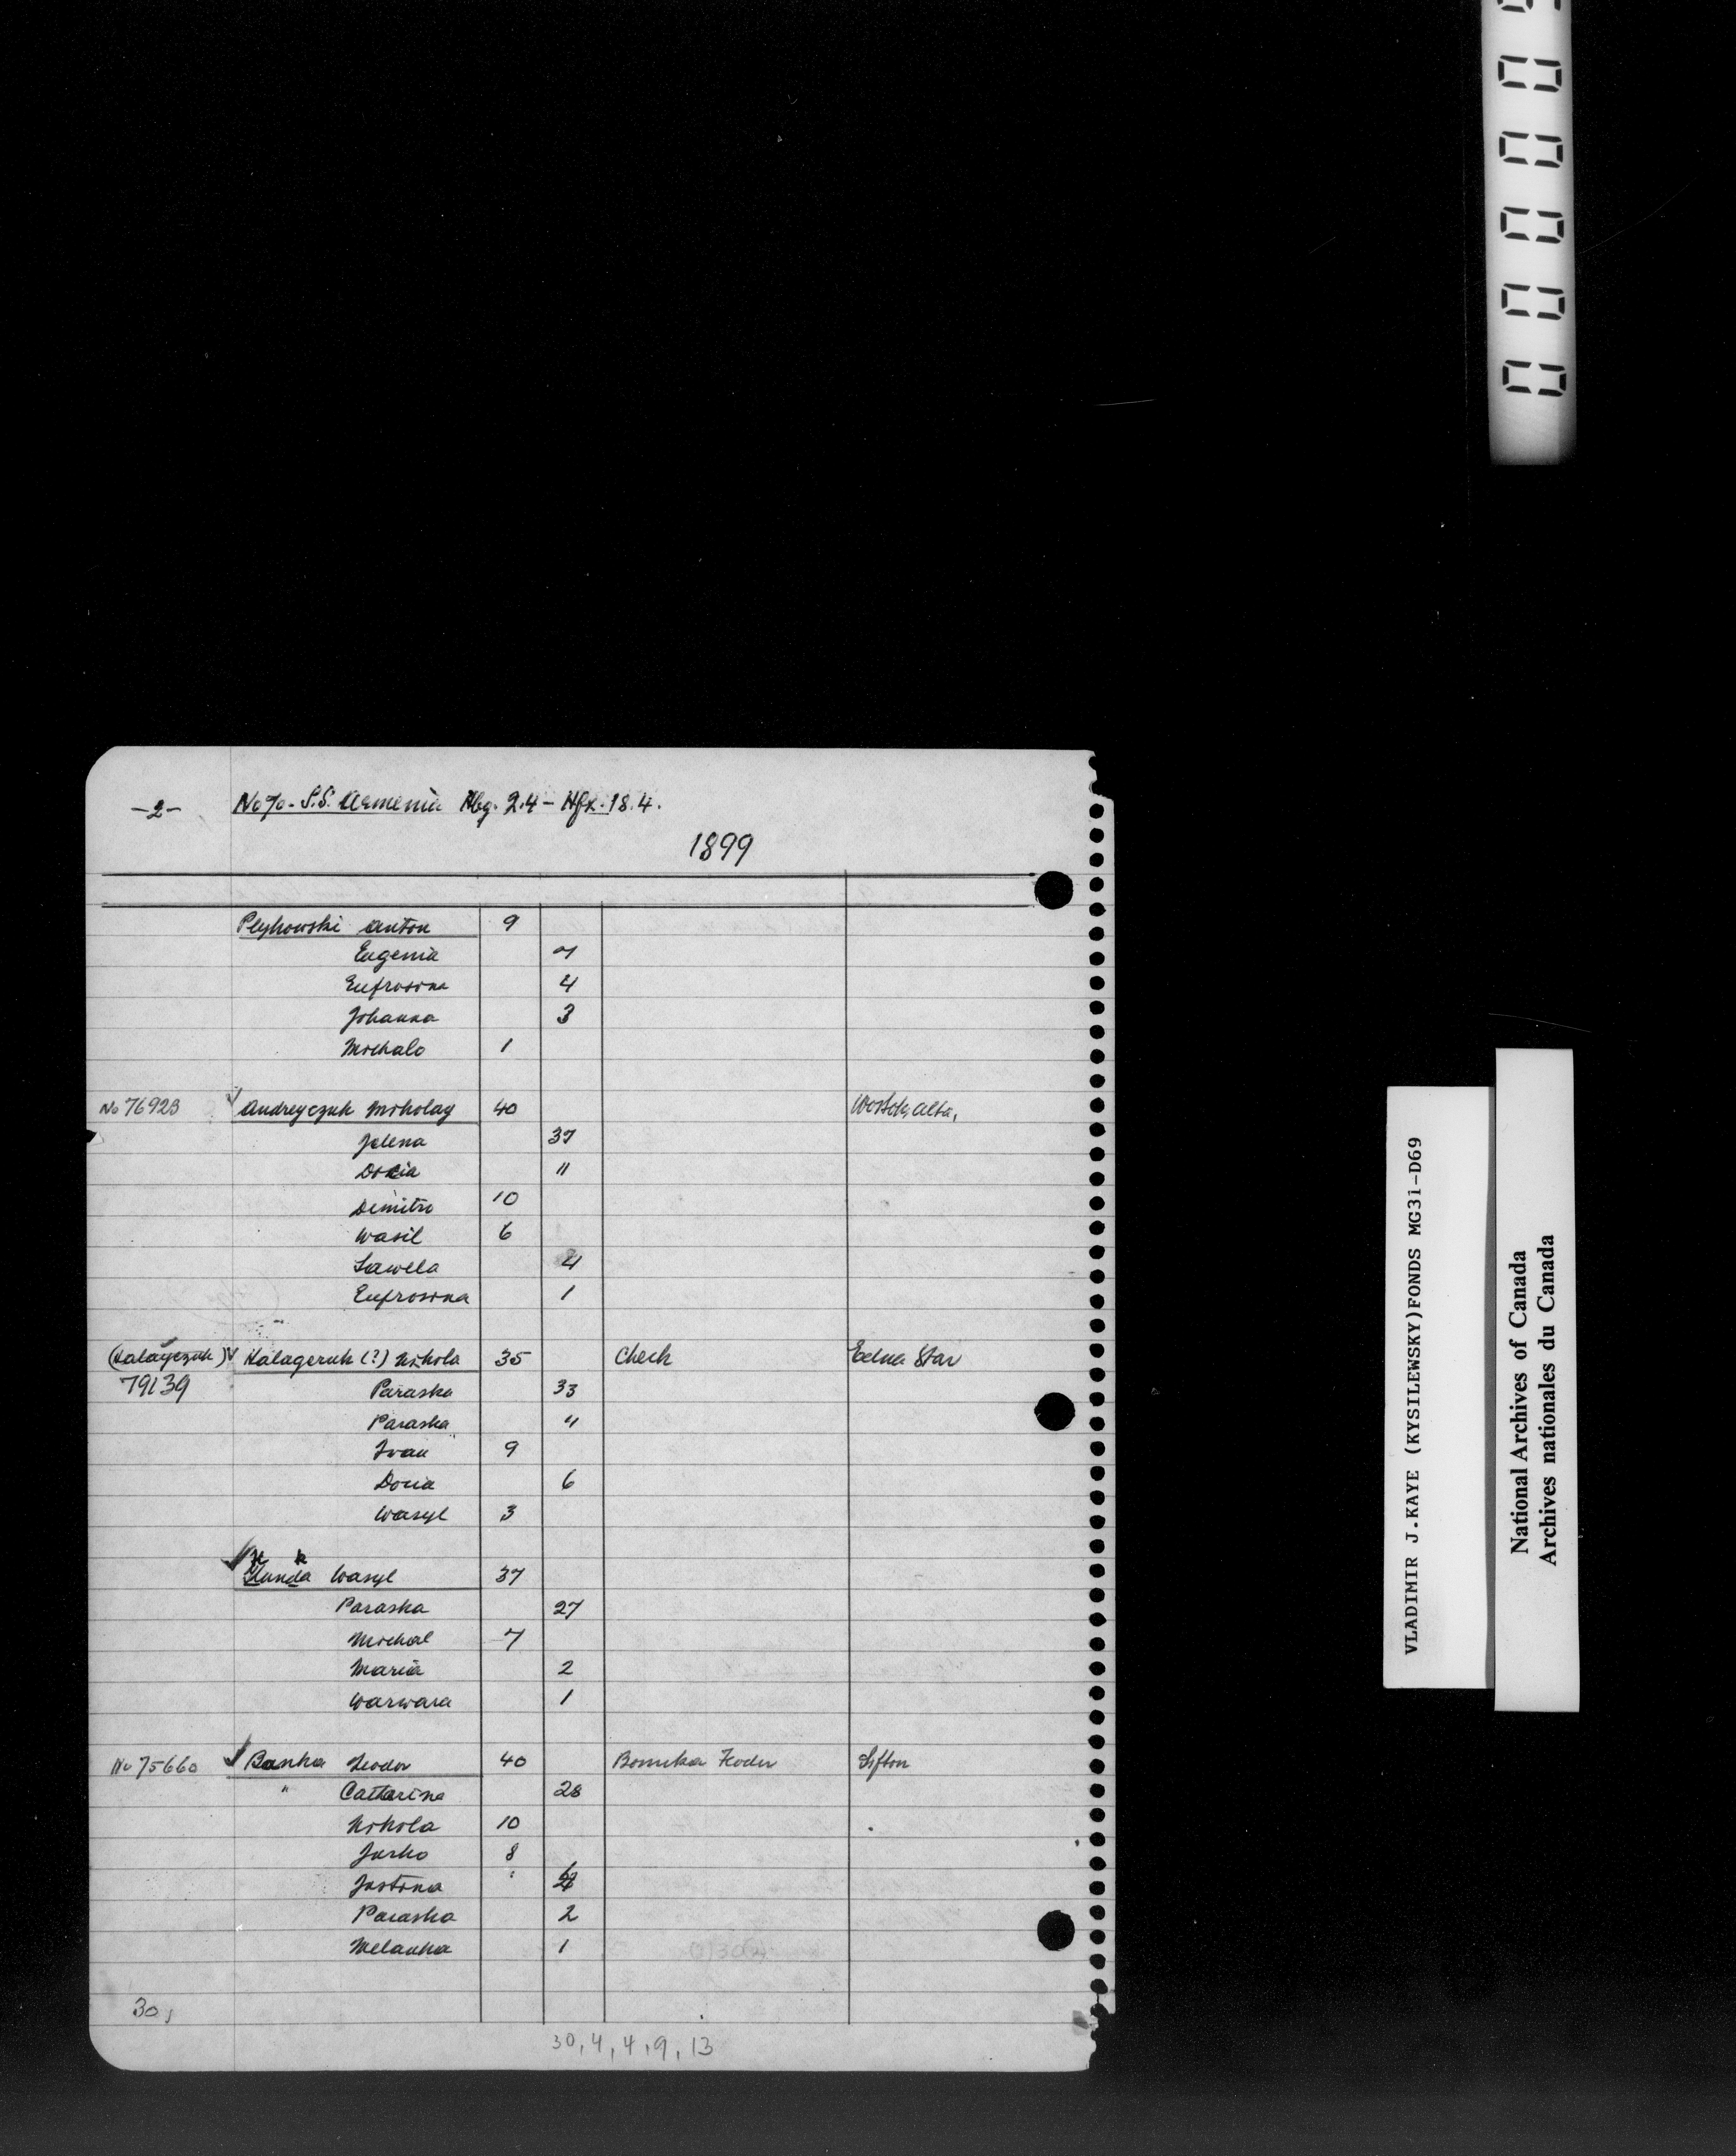 -2- No 70 - S.S. Armenia Hbg. 2.4 - Hfx. 18.4.
1899
Plyhowski Anton 9
Eugenia 7
Eufrosina 4
Johanna 3
Michalo 1
No 76923 ✓ Andreyczuk Mikolay 40 Wostok, Alta,
Jelena 37
Docia "
Dimitro 10
Wasil 6
4
Eufrosina 1
(Kalayczuk) ✓ Kalageruk (?) Nikola 35 Check Edna Star
79139
Paraska 33
Paraska "
Ivan 9
Docia 6
Wasyl 3
✓ Kunda Wasyl 37
Paraska 27
Michal 7
Maria 2
Warwara 1
No 75660 ✓ Banka Teodor 40 Bomka Fodor Sifton
" Catharina 28
Nikola 10
Jurko 8
Justina
Paraska 2
Melanka 1
30,
30, 4, 4, 9, 13
0 0 0 0 0
VLADIMIR J.KAYE (KYSILEWSKY)FONDS MG31-D69
National Archives of Canada
Archives nationales du Canada